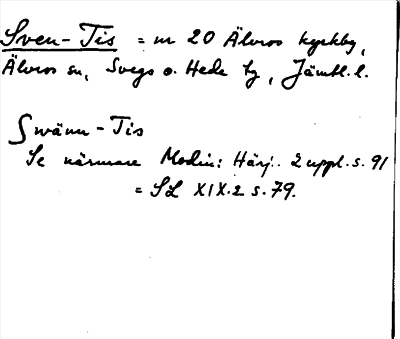 Sven-Tis = nr 20 Älvros kyrkby,
Älvros sn, Svegs o. Hede tg, Jämtl. l.
Swänn-Tis
Se närmare Modin: Härj. 2 uppl. s. 91
= SL XIX.2 s. 79.